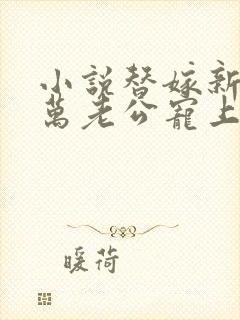 小說替嫁新
萬老公寵上
暖荷